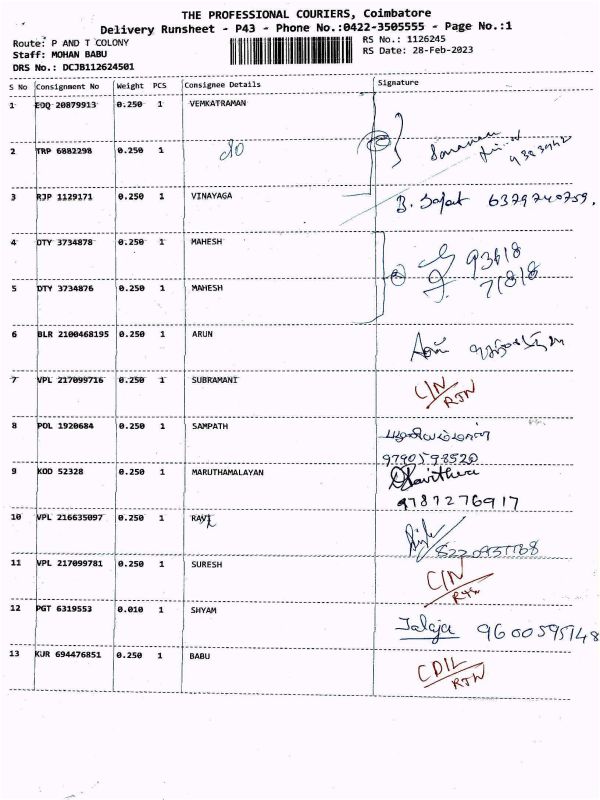 THE PROFESSIONAL COURIERS, Coimbatore
Delivery Runsheet - P43 - Phone No.:0422-3505555 - Page No.:1
Route: P AND T COLONY
RS No.: 1126245
Staff: MOHAN BABU
RS Date: 28-Feb-2023
DRS No.: DCJB112624501
S No Consignment No Weight PCS Consignee Details Signature
1 EOQ 20879913 0.250 1 VEMKATRAMAN
2 TRP 6882298 0.250 1
3 RJP 1129171 0.250 1 VINAYAGA 6379740759.
4 DTY 3734878 0.250 1 MAHESH 93618
5 DTY 3734876 0.250 1 MAHESH 71818
6 BLR 2100468195 0.250 1 ARUN
7 VPL 217099716 0.250 1 SUBRAMANI C/N
RTN
8 POL 1920684 0.250 1 SAMPATH
9790598520
9 KOD 52328 0.250 1 MARUTHAMALAYAN
9787276917
10 VPL 216635097 0.250 1 RAVI
11 VPL 217099781 0.250 1 SURESH C/N
RTN
12 PGT 6319553 0.010 1 SHYAM Jalaja 9600595148
13 KUR 694476851 0.250 1 BABU CDIL
RTN